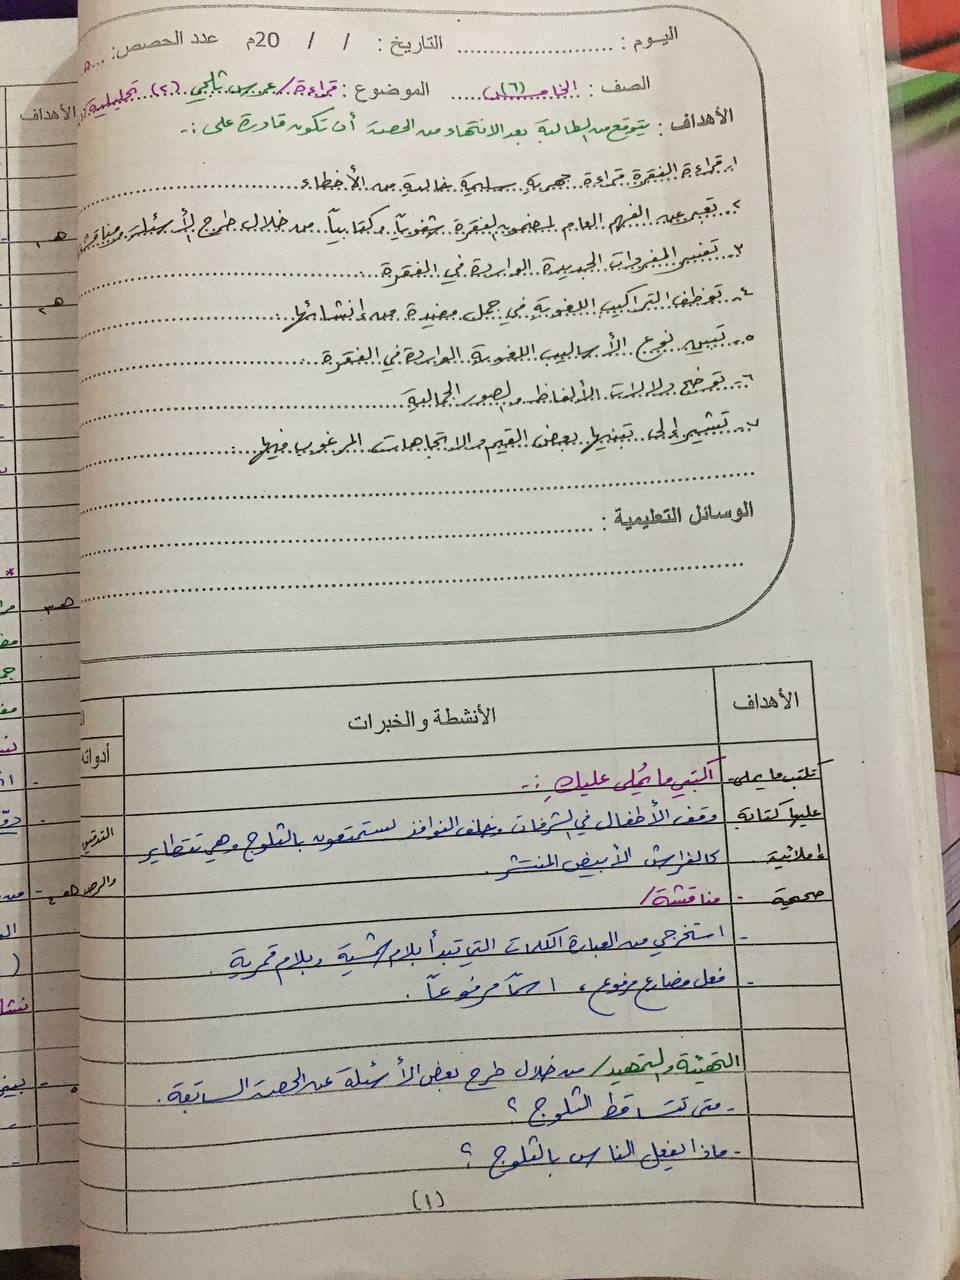 اليوم : ........................ التاريخ : / / 20م عدد الحصص: ...
الصف : الخامس (٦) الموضوع : قراءة/ عرس ثلجي (٢) تحليلية
الأهداف : يتوقع من الطالبة بعد الانتهاء من الحصة أن تكون قادرة على :-
١- قراءة الفقرة قراءة جهرية سليمة خالية من الأخطاء
٢- تعبر عن الفهم العام لمضمون الفقرة شفوياً وكتابياً من خلال طرح الأسئلة
٣- تفسر المفردات الجديدة الواردة في الفقرة
٤- توظف التراكيب اللغوية في جمل مفيدة من إنشائها
٥- تبين نوع الأساليب اللغوية الواردة في الفقرة
٦- توضح دلالات الألفاظ والصور الجمالية
٧- تشير إلى تبنيها بعض القيم والاتجاهات المرغوب فيها
الوسائل التعليمية :
الأهداف
الأنشطة والخبرات
تكتب ما يملى
عليها كتابة
إملائية
صحيحة
اكتبي ما يُملى عليكِ :-
وقف الأطفال في الشرفات وخلف النوافذ يستمتعون بالثلوج وهي تتطاير
كالفراش الأبيض المنتشر.
- مناقشة/
- استخرجي من العبارة الكلمات التي تبدأ بلام شمسية وبلام قمرية .
- فعل مضارع مرفوع ، اسماً مرفوعاً .
التهيئة والتمهيد/ من خلال طرح بعض الأسئلة عن الحصة السابقة .
- متى تتساقط الثلوج ؟
- ماذا يفعل الناس بالثلوج ؟
(١)
الأهداف